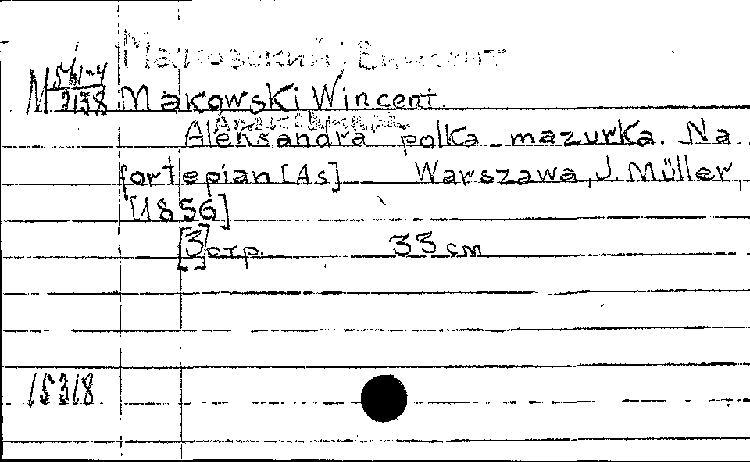 Маковский Винсент
M 5/VI-4
3138
Makowski Wincent.
Aleksandra polka-mazurka. Na
fortepian [As] Warszawa, J. Müller,
[1856]
[3] стр. 33 см
15318